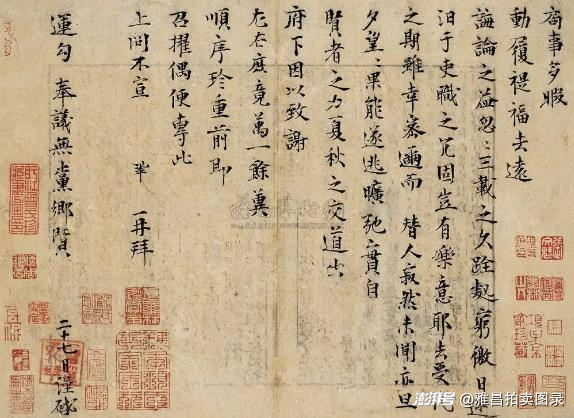 局事多暇
動履禔福去遠
誨論之益忽〻三載之久跧處窮徼日迷
汩于吏職之冗固豈有樂意耶去受代
之期雖幸密邇而 替人寂然未聞亦旦
夕望〻果能遂逃曠弛實自
賢者之力夏秋之交道出
府下因以致謝
左右庶竟萬一餘冀
順序珍重前即
召擢偶便專此
上問不宣 鞏 再拜
運勾 奉議無黨鄉賢 二十七日謹啓
澎湃号@雅昌拍卖图录